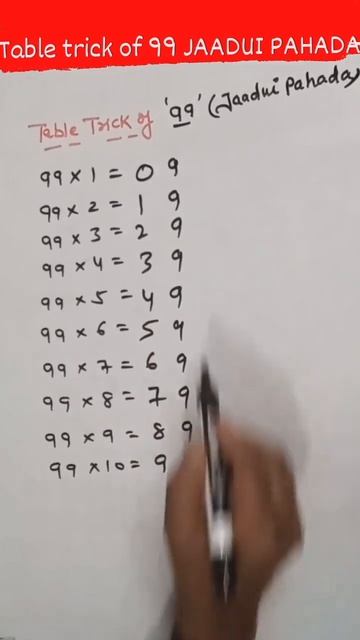 Table trick of 99 JAADUI PAHADA
Table Trick of '99' (Jaadui Pahada)
99 × 1 = 0 9
99 × 2 = 1 9
99 × 3 = 2 9
99 × 4 = 3 9
99 × 5 = 4 9
99 × 6 = 5 9
99 × 7 = 6 9
99 × 8 = 7 9
99 × 9 = 8 9
99 × 10 = 9